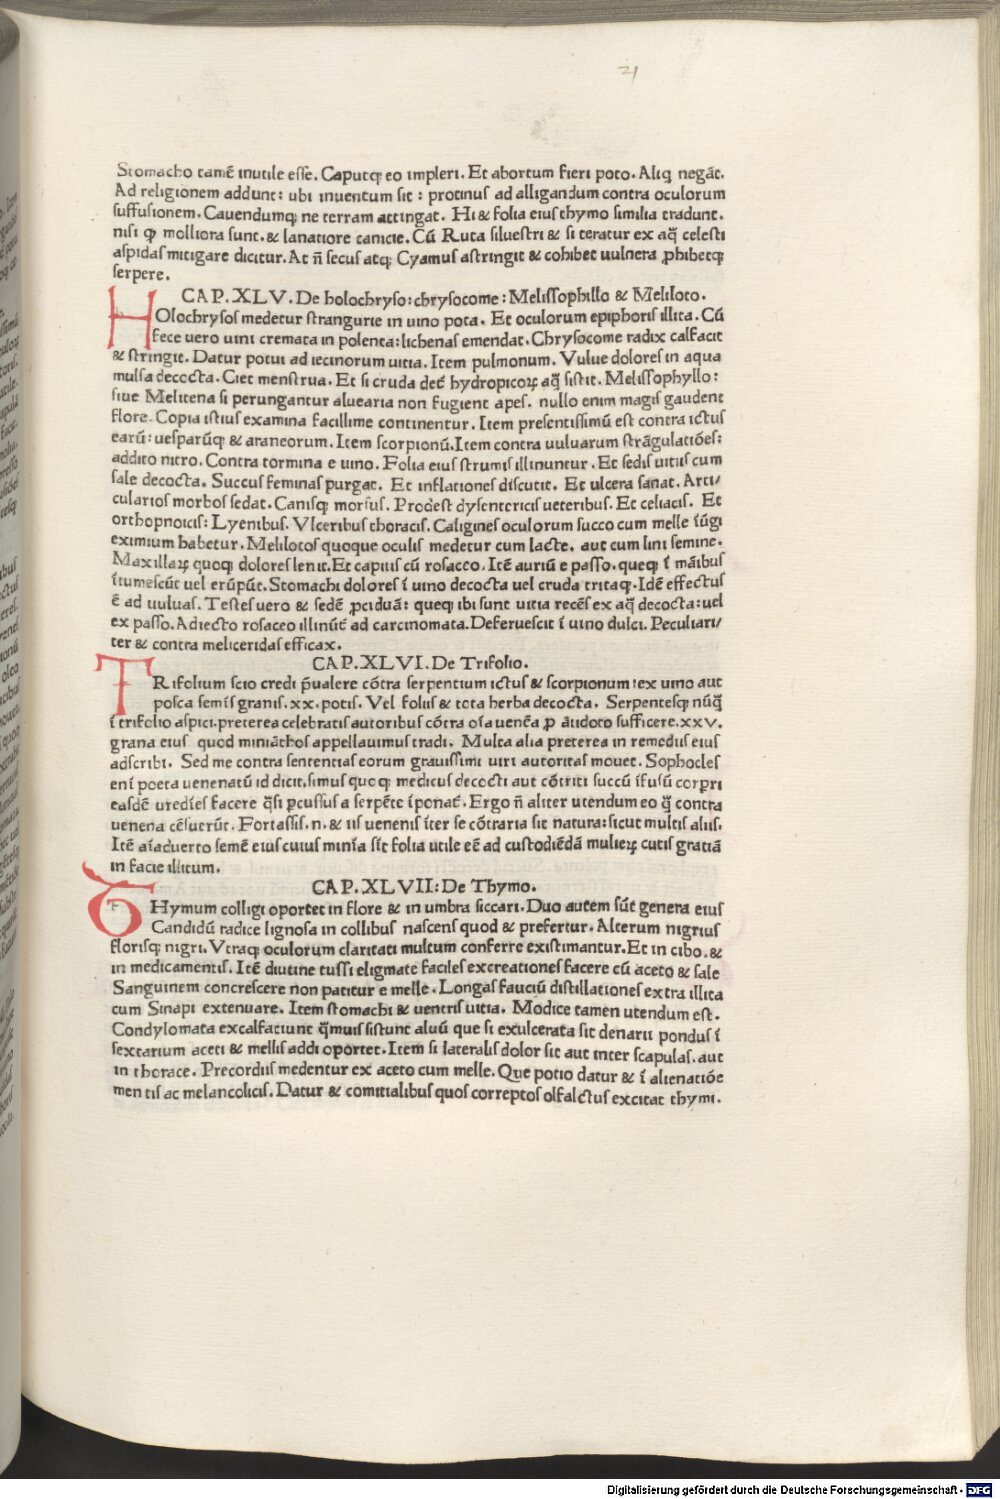 21
Stomacho tamē inutile esse. Caputq; eo impleri. Et abortum fieri poto. Aliq negāt.
Ad religionem addunt: ubi inuentum sit: protinus ad alligandum contra oculorum
suffusionem. Cauendumq; ne terram attingat. Hi & folia eius thymo similia tradunt.
nisi ꝙ molliora sunt. & lanatiore canicie. Cū Ruta siluestri & si teratur ex aq̄ celesti
aspidas mitigare dicitur. At n̄ secus atq; Cyamus astringit & cohibet uulnera ꝓhibetq;
serpere.
CAP. XLV. De holochryso: chrysocome: Melissophillo & Meliloto.
HOlochrysos medetur strangurie in uino pota. Et oculorum epiphoris illita. Cū
fece uero uini cremata in polenta: lichenas emendat. Chrysocome radix calfacit
& stringit. Datur potui ad iecinorum uitia. Item pulmonum. Vulue dolores in aqua
mulsa decocta. Ciet menstrua. Et si cruda det̄ hydropicoꝝ aq̄ sistit. Melissophyllo:
siue Melitena si perungantur aluearia non fugient apes. nullo enim magis gaudent
flore. Copia istius examina facillime continentur. Item presentissimū est contra ictus
earū: uesparūq; & araneorum. Item scorpionū. Item contra uuluarum strāgulatiōes:
addito nitro. Contra tormina e uino. Folia eius strumis illinuntur. Et sedis uitiis cum
sale decocta. Succus feminas purgat. Et inflationes discutit. Et ulcera sanat. Arti/
cularios morbos sedat. Canisq; morsus. Prodest dysentericis ueteribus. Et celiacis. Et
orthopnoicis: Lyenibus. Vlceribus thoracis. Caligines oculorum succo cum melle īūgi
eximium habetur. Melilotos quoque oculis medetur cum lacte. aut cum lini semine.
Maxillaꝝ quoq; dolores lenit. Et capitis cū rosacco. Itē auriū e passo. queq; ī māibus
ītumescūt uel erūpūt. Stomachi dolores ī uino decocta uel cruda tritaq;. Idē effectus
ē ad uuluas. Testes uero & sedē ꝓciduā: queq; ibi sunt uitia recēs ex aq̄ decocta: uel
ex passo. Adiecto rosaceo illinūt̄ ad carcinomata. Deferuescit ī uino dulci. Peculiari/
ter & contra meliceridas efficax.
CAP. XLVI. De Trifolio.
TRifolium scio credi p̄ualere cōtra serpentium ictus & scorpionum: ex uino aut
posca semīs granis. xx. potis. Vel foliis & tota herba decocta. Serpentesq; nūq̄
ī trifolio aspici. preterea celebratis autoribus cōtra oīa uenēa ꝑ ātidoto sufficere. xxv.
grana eius quod miniāthos appellauimus tradi. Multa alia preterea in remediis eius
adscribi. Sed me contra sententias eorum grauissimi uiri autoritas mouet. Sophocles
enī poeta uenenatū id dicit. simus quoq; medicus decocti aut cōtriti succū īfusū corpri
easdē uredīes facere q̄si ꝑcussus a serpēte īponat̄. Ergo n̄ aliter utendum eo q̄ contra
uenena cēsuerūt. Fortassis. n. & iis uenenis īter se cōtraria sit natura: sicut multis aliis.
Itē aīaduerto semē eius cuius minīa sīt folia utile eē ad custodiēdā mulieꝝ cutis gratiā
in facie illitum.
CAP. XLVII: De Thymo.
THymum colligi oportet in flore & in umbra siccari. Duo autem sūt genera eius
Candidū radice lignosa in collibus nascens quod & prefertur. Alterum nigrius
florisq; nigri. Vtraq; oculorum claritati multum conferre existimantur. Et in cibo. &
in medicamentis. Itē diutine tussi eligmate faciles excreationes facere cū aceto & sale
Sanguinem concrescere non patitur e melle. Longas fauciū distillationes extra illita
cum Sinapi extenuare. Item stomachi & uentris uitia. Modice tamen utendum est.
Condylomata excalfaciunt q̄muis sistunt aluū que si exulcerata sit denarii pondus ī
sextarium aceti & mellis addi oportet. Item si lateralis dolor sit aut inter scapulas. aut
in thorace. Precordiis medentur ex aceto cum melle. Que potio datur & ī alienatiōe
mentis ac melancolicis. Datur & comitialibus quos correptos olfalctus excitat thymi.
Digitalisierung gefördert durch die Deutsche Forschungsgemeinschaft - DFG